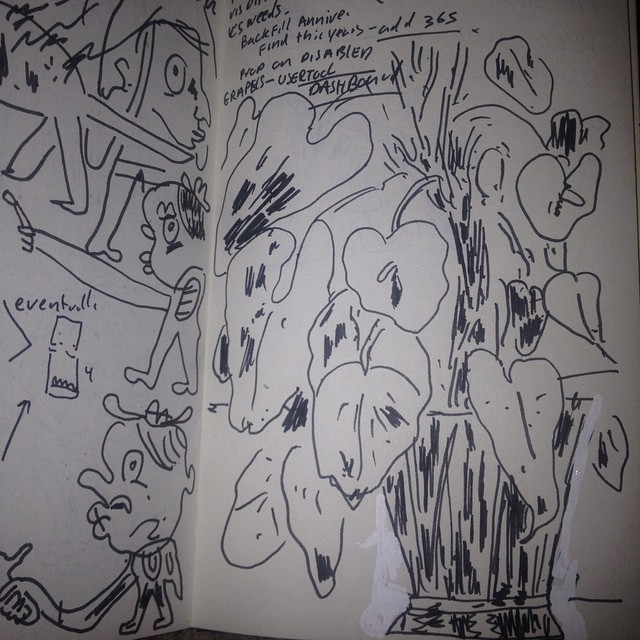 needs.
Backfill Annive.
Find this years - add 365
NOP on DISABLED
GRAPHS - USERTOOL
DASHBOARD
eventual.
4